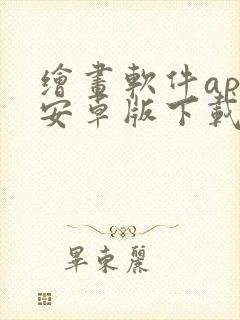 繪畫軟件ap
安卓版下載
畢東麗